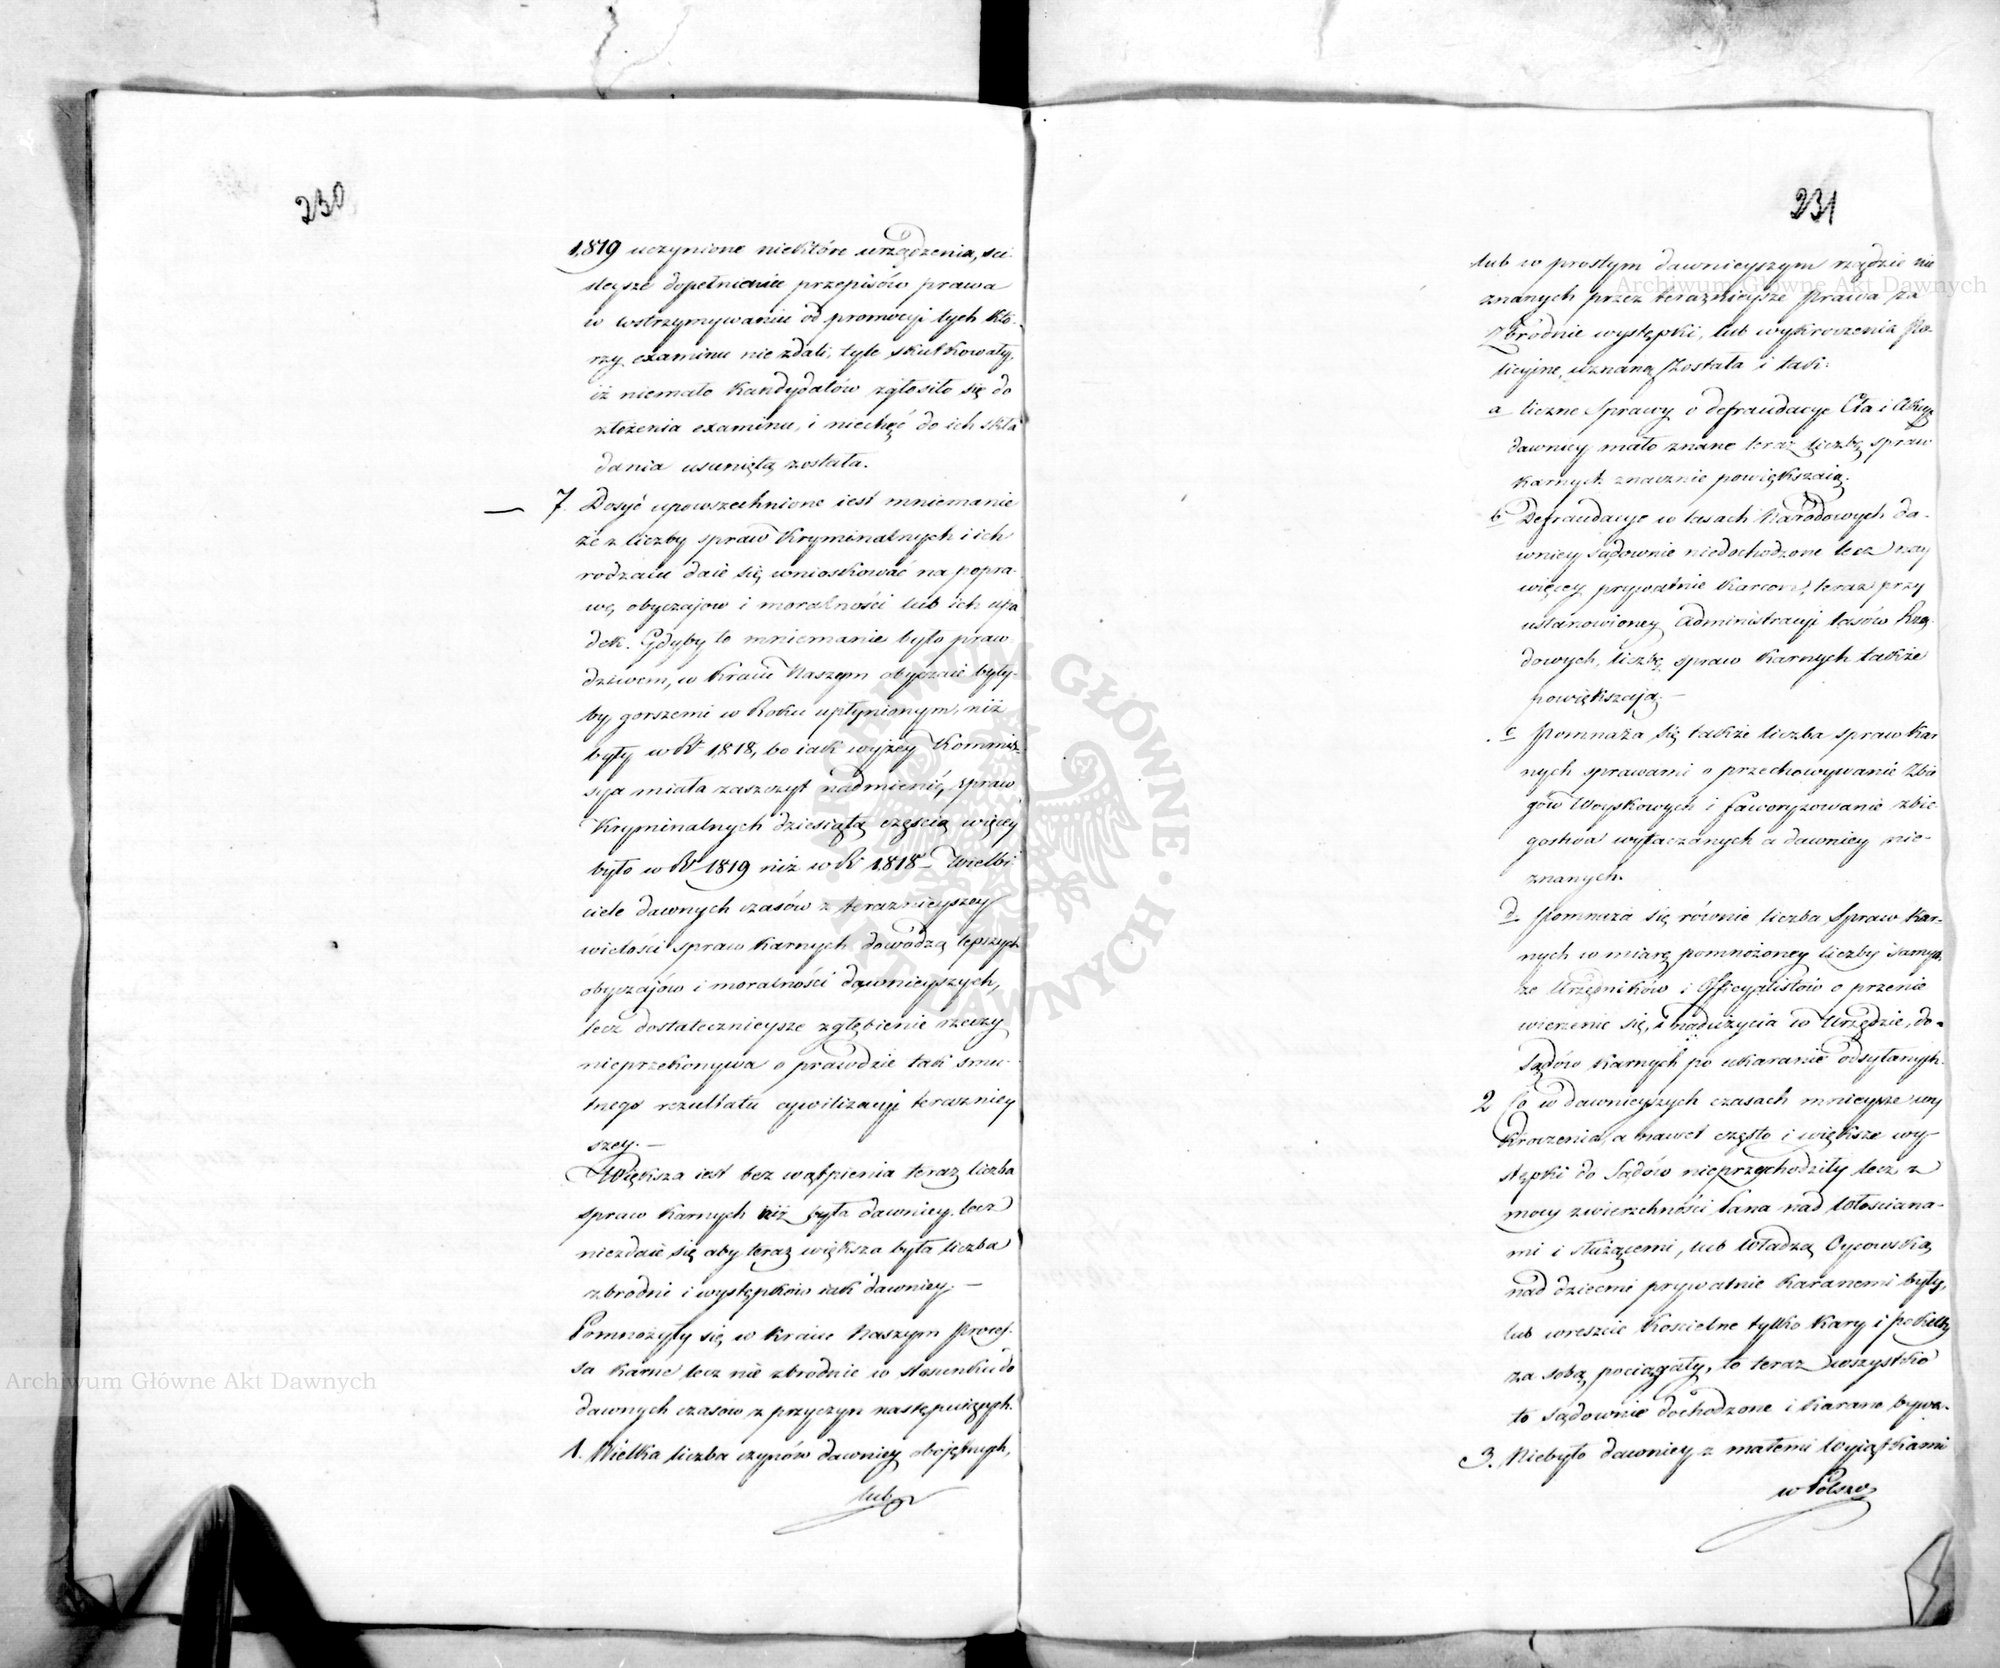 230
1,819 uczynione niektóre urządzenia, sci-
sleysze dopełnienie przepisów prawa
w wstrzymywaniu od promocyi tych któ-
rzy examinu nie zdali, tyle skutkowały,
iż niemało Kandydatów zgłosiło się do
złożenia examinu, i niechęć do ich skła
dania usuniętą została.
— 7. Dosyć upowszechnione iest mniemanie
że z liczby spraw Kryminalnych i ich
rodzaiu daie się wnioskować na popra-
wę obyczajow i moralności lub ich upa
dek. Gdyby to mniemanie było praw
dziwem, w Kraiu Naszym obyczaie były-
by gorszemi w Roku upłynionym, niż
były w R. 1,818, bo iak wyżey Kommis-
syja miała zaszczyt nadmienić, spraw
Kryminalnych dziesiątą częścią więcey
było w R. 1819 niż w R. 1818 – Wielbi
ciele dawnych czasów z teraznieyszey
wielości spraw karnych dowodzą lepszych
obyczajów i moralności dawnieyszych,
lecz dostatecznieysze zgłębienie rzeczy
nieprzekonywa o prawdzie tak smu-
tnego rezultatu cywilizacyi terazniey
szey. –
Większa iest bez wątpienia teraz liczba
spraw karnych niż była dawniey, lecz
niezdaie się aby teraz większa była liczba
zbrodni i występków iak dawniey. –
Pomnożyły się w Kraiu Naszym Proces-
sa karne lecz nie zbrodnie w stosunku do
dawnych czasów z przyczyn następuiących.
1. Wielka liczba czynów dawniey obojętnych,
lub
231
lub w prostym dawnieyszym rządzie nie
znanych przez teraznieysze Prawa za
Zbrodnie występki, lub wykroczenia Po-
licyjne, uznaną została i tak:
a liczne Sprawy o defraudacye Cła i Akcyz
dawniey mało znane teraz liczbę spraw
karnych znacznie powiększaią.
b Defraudacye w lasach Narodowych da-
wniey sądownie niedochodzone lecz nay
więcey prywatnie karcone, teraz przy
ustanowioney Administracyi lasów Rzą-
dowych, liczbę spraw Karnych także
powiększają. –
c Pomnaża się także liczba spraw kar
nych sprawami o przechowywanie Zbie
gów Woyskowych i faworyzowanie zbie-
gostwa wytaczanych a dawniey nie-
znanych.
d Pomnaża się równie liczba Spraw kar-
nych w miarę pomnożoney liczby samych
że Urzędników i Officyalistów o przenie
wierzenie się, i nadużycia w Urzędzie, do-
Sądów karnych po ukaranie odsyłanych.
2 Co w dawnieyszych czasach mnieysze wy
kroczenia, a nawet często i większe wy
stępki do Sądów nieprzychodziły lecz z
mocy zwierzchności Pana nad Włościana-
mi i służącemi, lub Władzą Oycowską
nad dziećmi prywatnie karanemi były,
lub wreszcie Kościelne tylko kary i pokuty
za sobą pociągały, to teraz wszystko
to sądownie dochodzone i karane bywa.
3. Niebyło dawniey z małemi Wyjątkami
w Polszcze
Archiwum Główne Akt Dawnych
Archiwum Główne Akt Dawnych
Archiwum Główne Akt Dawnych
ARCHIWUM GŁÓWNE AKT DAWNYCH